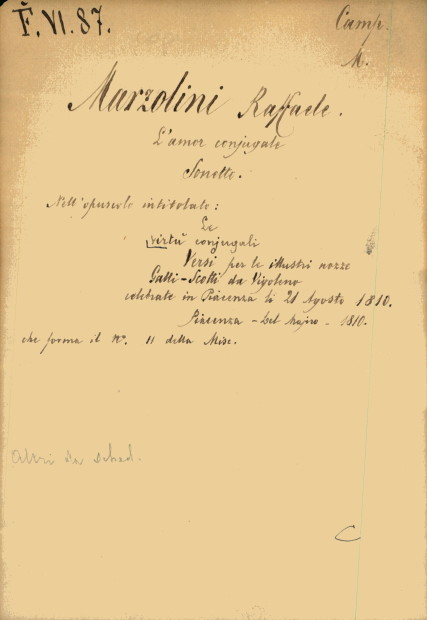 F. VI. 87.
Camp.
M.
Marzolini Raffaele.
L'amor conjugale
Sonetto.
Nell'opuscolo intitolato:
Le
virtù conjugali
Versi per le illustri nozze
Gatti-Scotti da Vigoleno
celebrate in Piacenza li 21 Agosto 1810.
Piacenza - Del Majno - 1810.
che forma il nº. 11 della Misc.
Altri
C